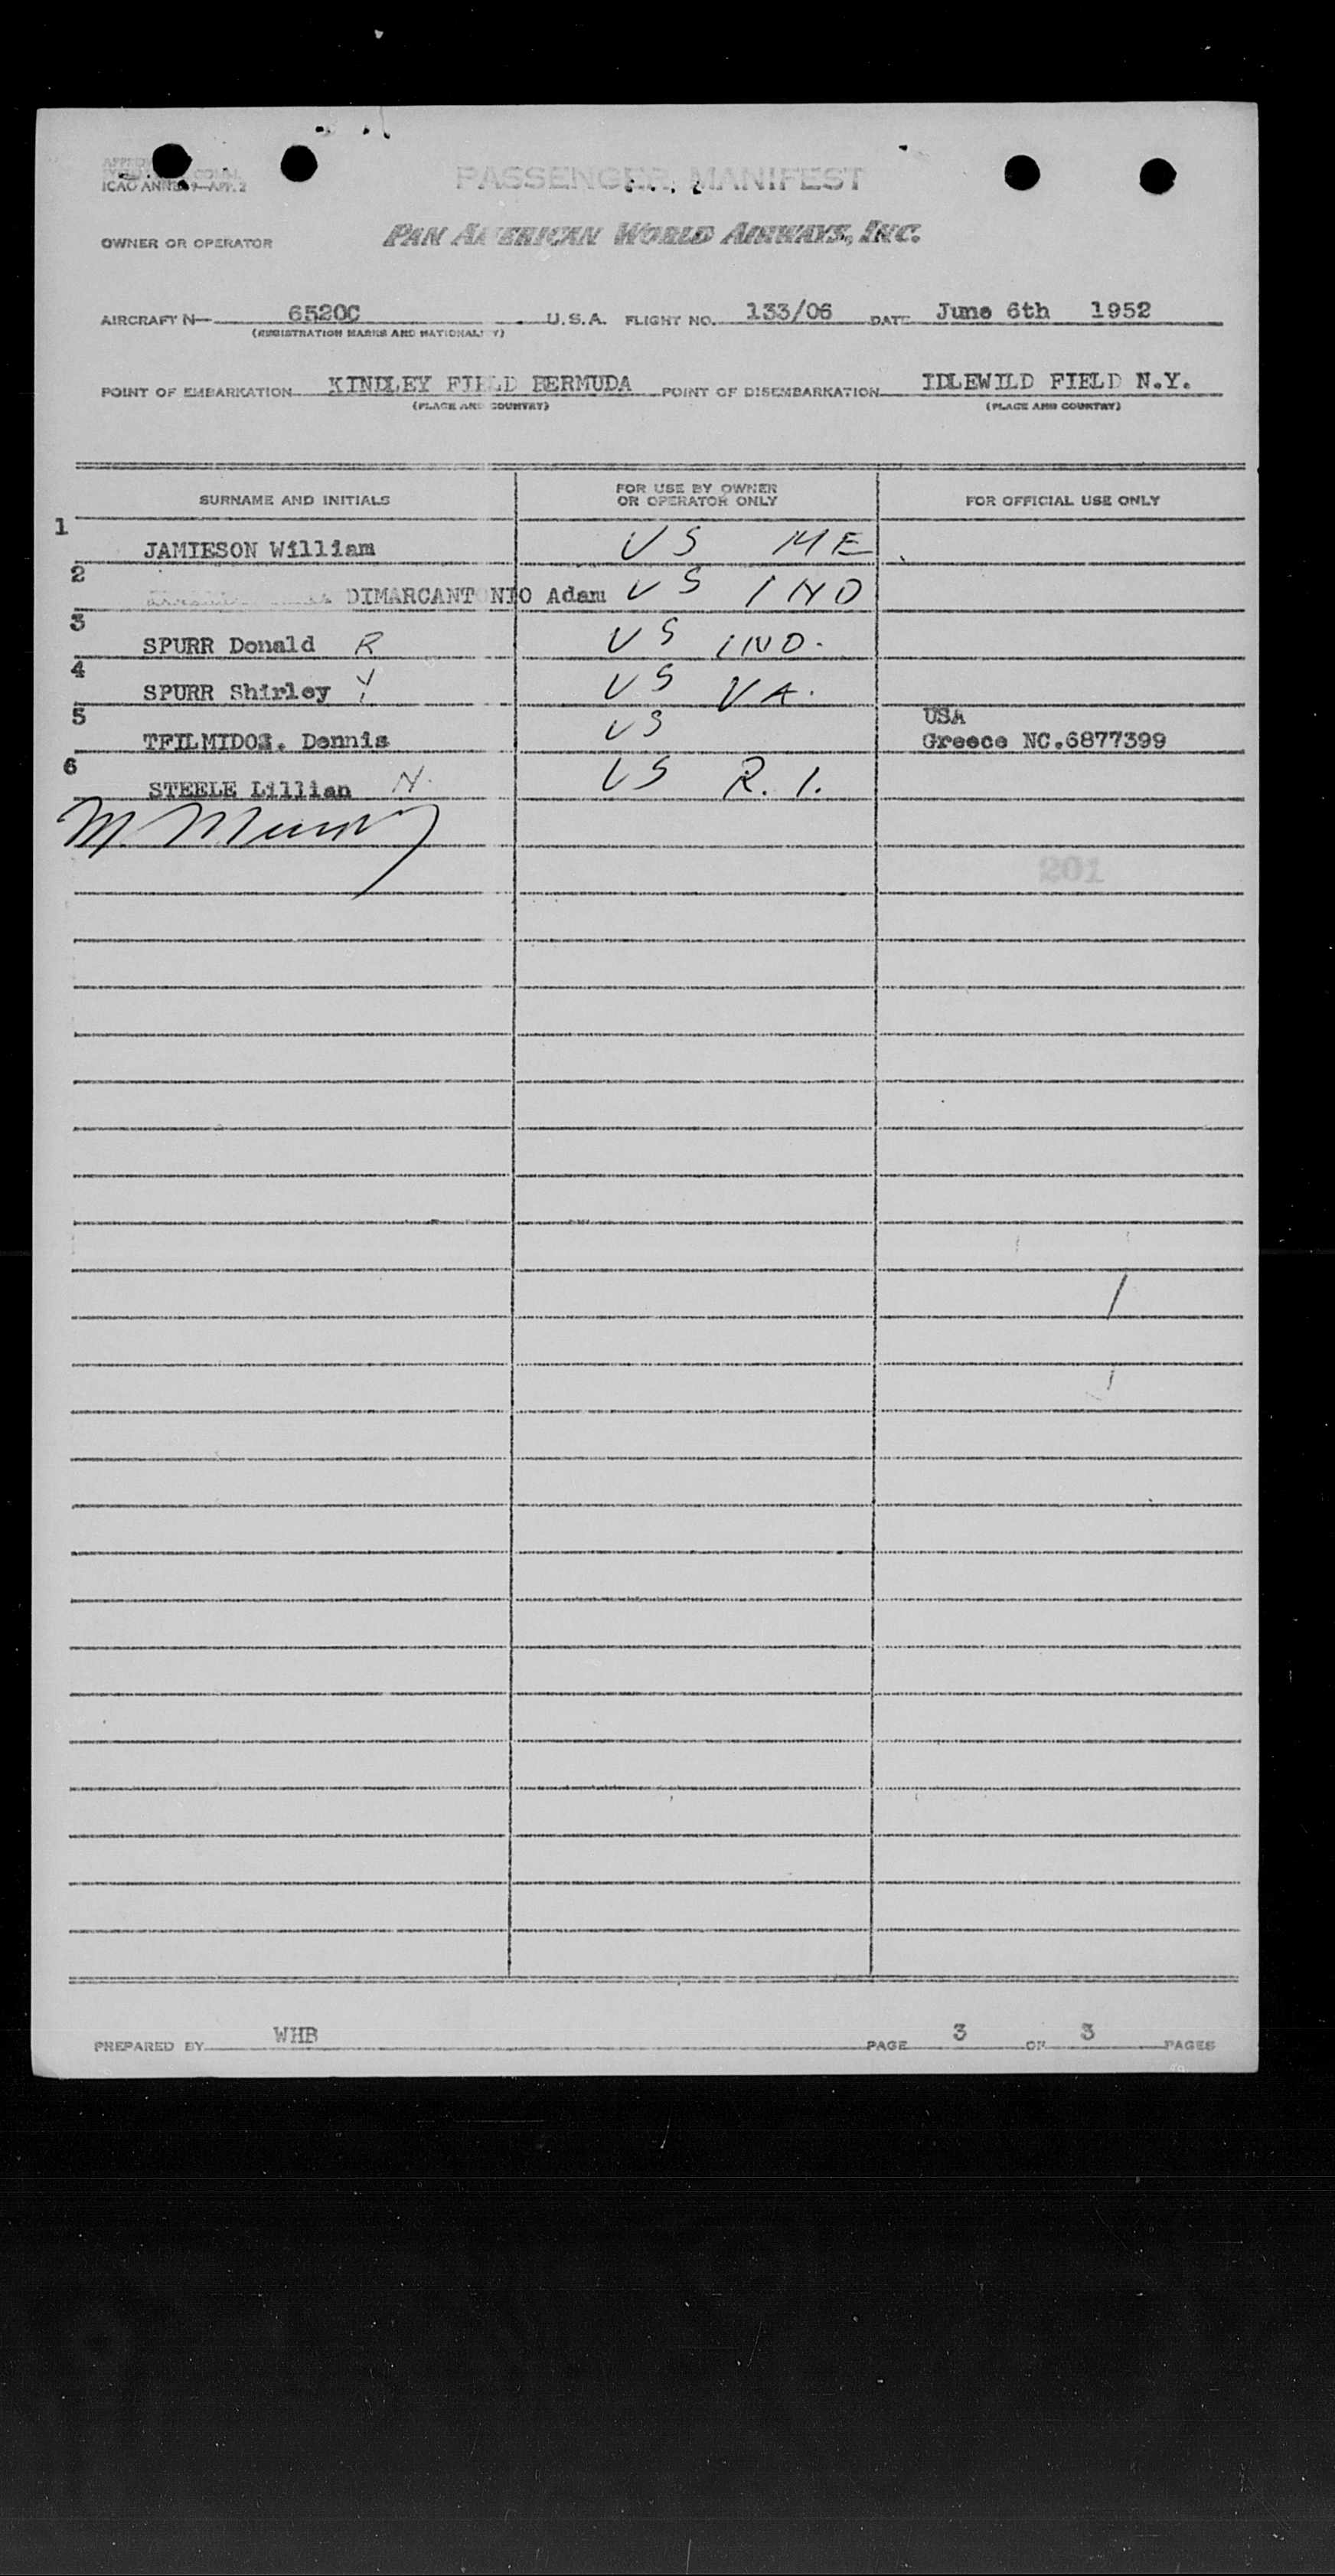 ICAO ANNEX 9—APP. 2
PASSENGER MANIFEST
OWNER OR OPERATOR PAN AMERICAN WORLD AIRWAYS, INC.
AIRCRAFT N— 6520C U.S.A. FLIGHT NO. 133/06 DATE June 6th 1952
(REGISTRATION MARKS AND NATIONALITY)
POINT OF EMBARKATION KINDLEY FIELD BERMUDA POINT OF DISEMBARKATION IDLEWILD FIELD N.Y.
(PLACE AND COUNTRY) (PLACE AND COUNTRY)
SURNAME AND INITIALS FOR USE BY OWNER OR OPERATOR ONLY FOR OFFICIAL USE ONLY
1 JAMIESON William US ME
2 DIMARCANTONIO Adam US IND
3 SPURR Donald R US IND.
4 SPURR Shirley Y US VA.
5 TFILMIDOS. Dennis US USA
Greece NC.6877399
6 STEELE Lillian N. US R.I.
201
PREPARED BY WHB PAGE 3 OF 3 PAGES